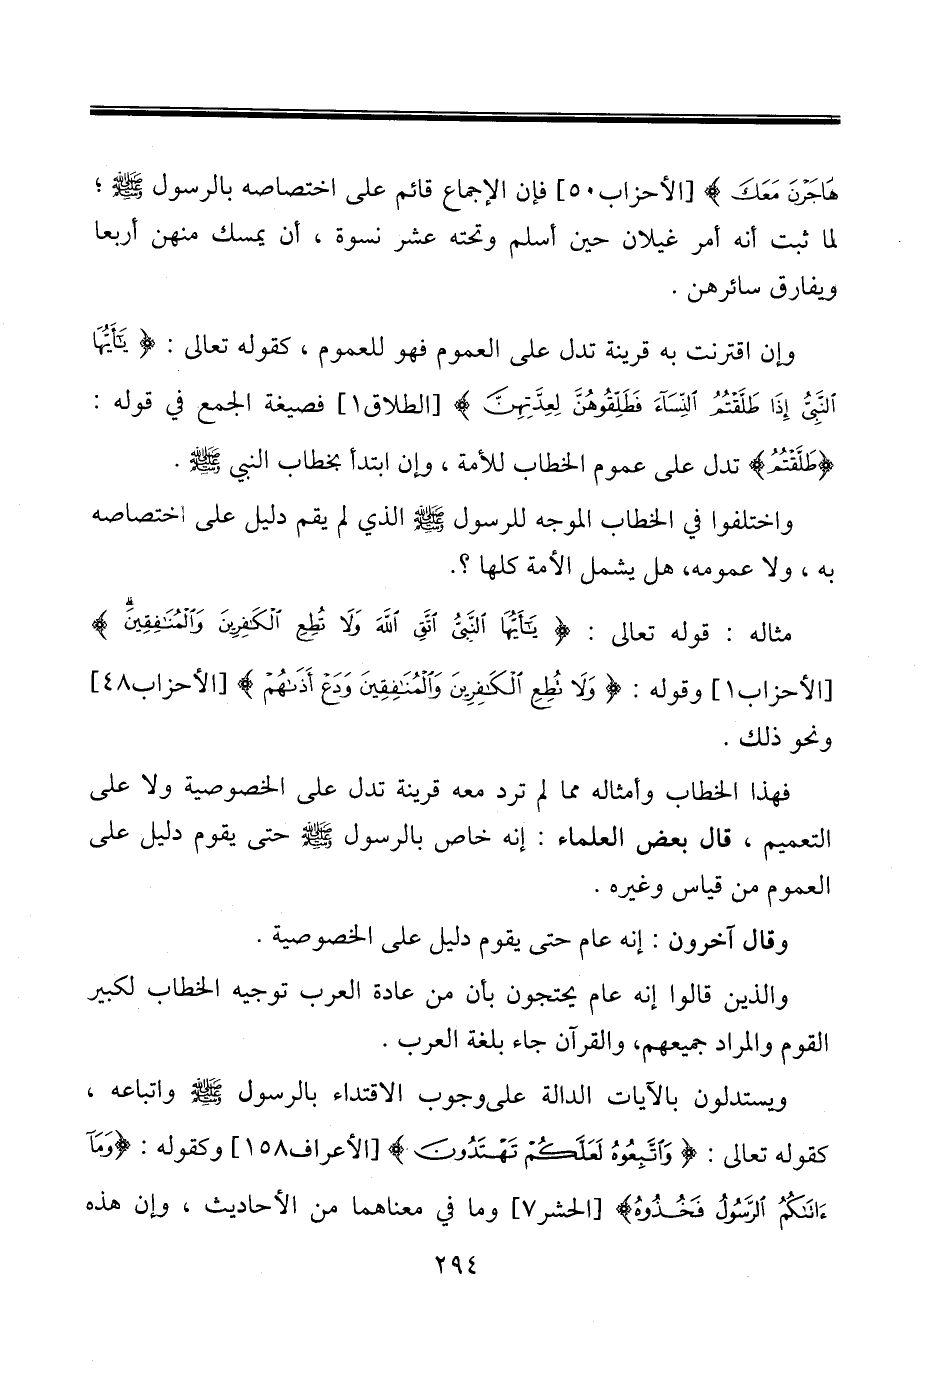 هَاجَرْنَ مَعَكَ ﴾ [الأحزاب٥٠] فإن الإجماع قائم على اختصاصه بالرسول ﷺ ؛
لما ثبت أنه أمر غيلان حين أسلم وتحته عشر نسوة ، أن يمسك منهن أربعا
ويفارق سائرهن .
وإن اقترنت به قرينة تدل على العموم فهو للعموم ، كقوله تعالى : ﴿ يَٰٓأَيُّهَا
ٱلنَّبِيُّ إِذَا طَلَّقْتُمُ ٱلنِّسَآءَ فَطَلِّقُوهُنَّ لِعِدَّتِهِنَّ ﴾ [الطلاق١] فصيغة الجمع في قوله :
﴿طَلَّقْتُمُ﴾ تدل على عموم الخطاب للأمة ، وإن ابتدأ بخطاب النبي ﷺ .
واختلفوا في الخطاب الموجه للرسول ﷺ الذي لم يقم دليل على اختصاصه
به ، ولا عمومه، هل يشمل الأمة كلها ؟.
مثاله : قوله تعالى : ﴿ يَٰٓأَيُّهَا ٱلنَّبِيُّ ٱتَّقِ ٱللَّهَ وَلَا تُطِعِ ٱلْكَٰفِرِينَ وَٱلْمُنَٰفِقِينَۗ ﴾
[الأحزاب١] وقوله : ﴿ وَلَا تُطِعِ ٱلْكَٰفِرِينَ وَٱلْمُنَٰفِقِينَ وَدَعْ أَذَىٰهُمْ ﴾ [الأحزاب٤٨]
ونحو ذلك .
فهذا الخطاب وأمثاله مما لم ترد معه قرينة تدل على الخصوصية ولا على
التعميم ، قال بعض العلماء : إنه خاص بالرسول ﷺ حتى يقوم دليل على
العموم من قياس وغيره .
وقال آخرون : إنه عام حتى يقوم دليل على الخصوصية .
والذين قالوا إنه عام يحتجون بأن من عادة العرب توجيه الخطاب لكبير
القوم والمراد جميعهم، والقرآن جاء بلغة العرب .
ويستدلون بالآيات الدالة على وجوب الاقتداء بالرسول ﷺ واتباعه ،
كقوله تعالى : ﴿ وَٱتَّبِعُوهُ لَعَلَّكُمْ تَهْتَدُونَ ﴾ [الأعراف١٥٨] وكقوله : ﴿وَمَآ
ءَاتَىٰكُمُ ٱلرَّسُولُ فَخُذُوهُ﴾ [الحشر٧] وما في معناهما من الأحاديث ، وإن هذه
٢٩٤